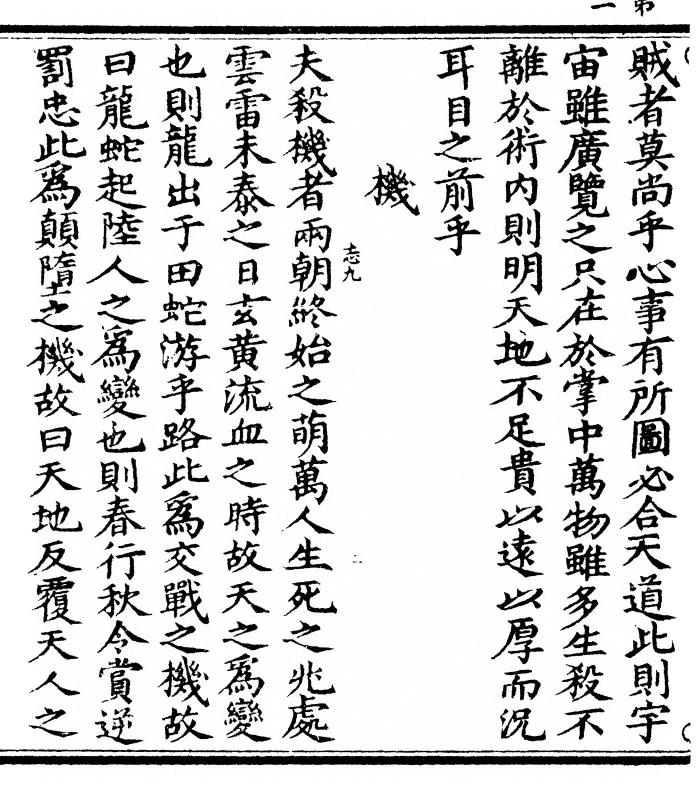 賊者莫尚乎心事有所圖必合天道此則宇
宙雖廣覽之只在於掌中萬物雖多生殺不
離於術内則明天地不足貴以遠以厚而況
耳目之前乎
機
志九
夫殺機者兩朝終始之萌萬人生死之兆處
雲雷未泰之日玄黄流血之時故天之爲變
也則龍出于田蛇游乎路此爲交戰之機故
曰龍蛇起陸人之爲變也則春行秋令賞逆
罰忠此爲顛墮之機故曰天地反覆天人之